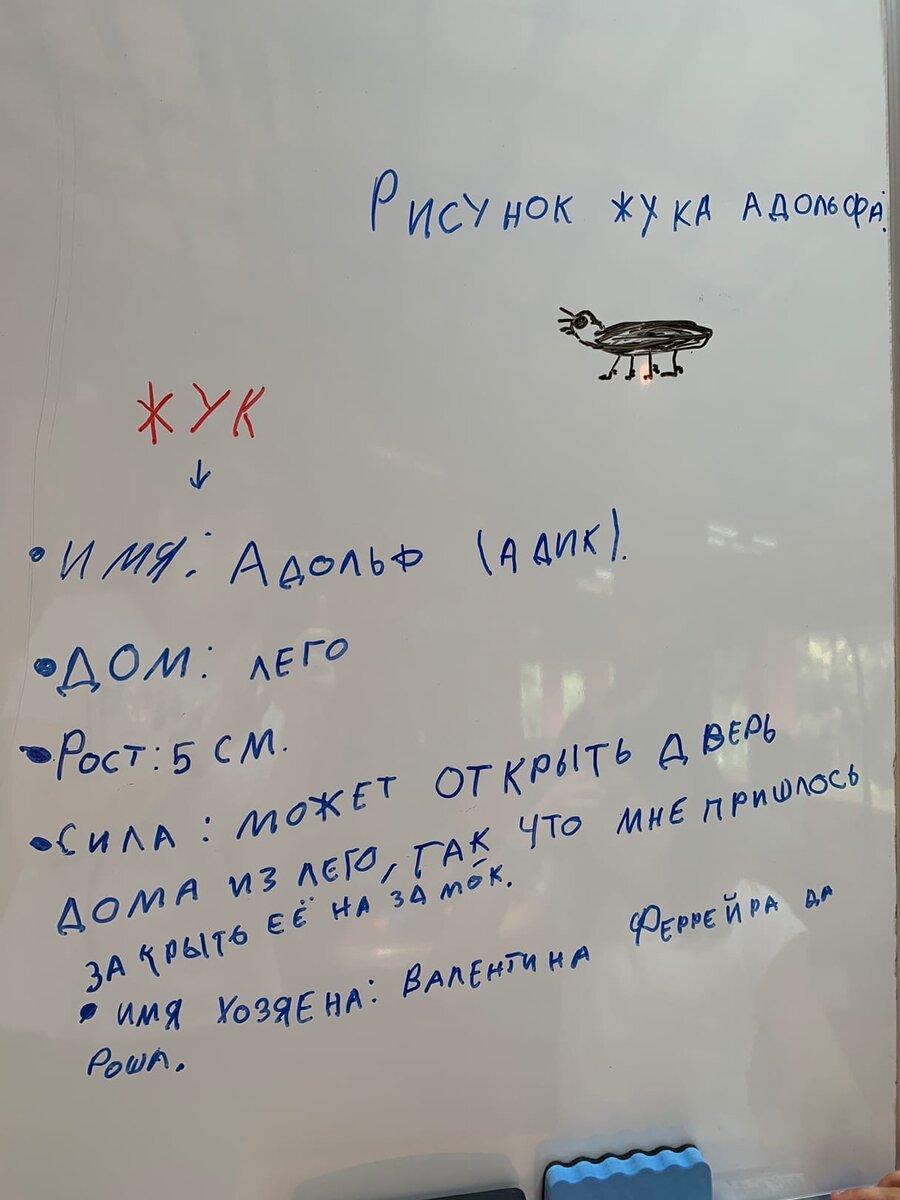 Рисунок жука Адольфа:
ЖУК
↓
• Имя: Адольф (Адик).
• Дом: лего
• Рост: 5 см.
• Сила: может открыть дверь
дома из лего, так что мне пришлось
закрыть её на замо́к.
• имя хозяена: Валентина Феррейра да
Роша.